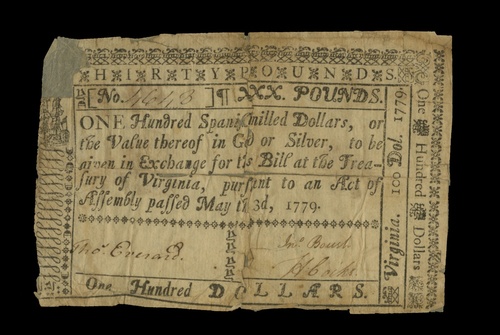 HIRTY POUNDS.
No. 4643 ¶ XXX. POUNDS.
ONE Hundred Spanish milled Dollars, or
the Value thereof in Go or Silver, to be
given in Exchange for this Bill at the Trea-
sury of Virginia, pursuant to an Act of
Assembly passed May the 3d, 1779.
Tho. Everard.
One Hundred DOLLARS.
Virginia. 100 Dol. 1779.
One Hundred Dollars